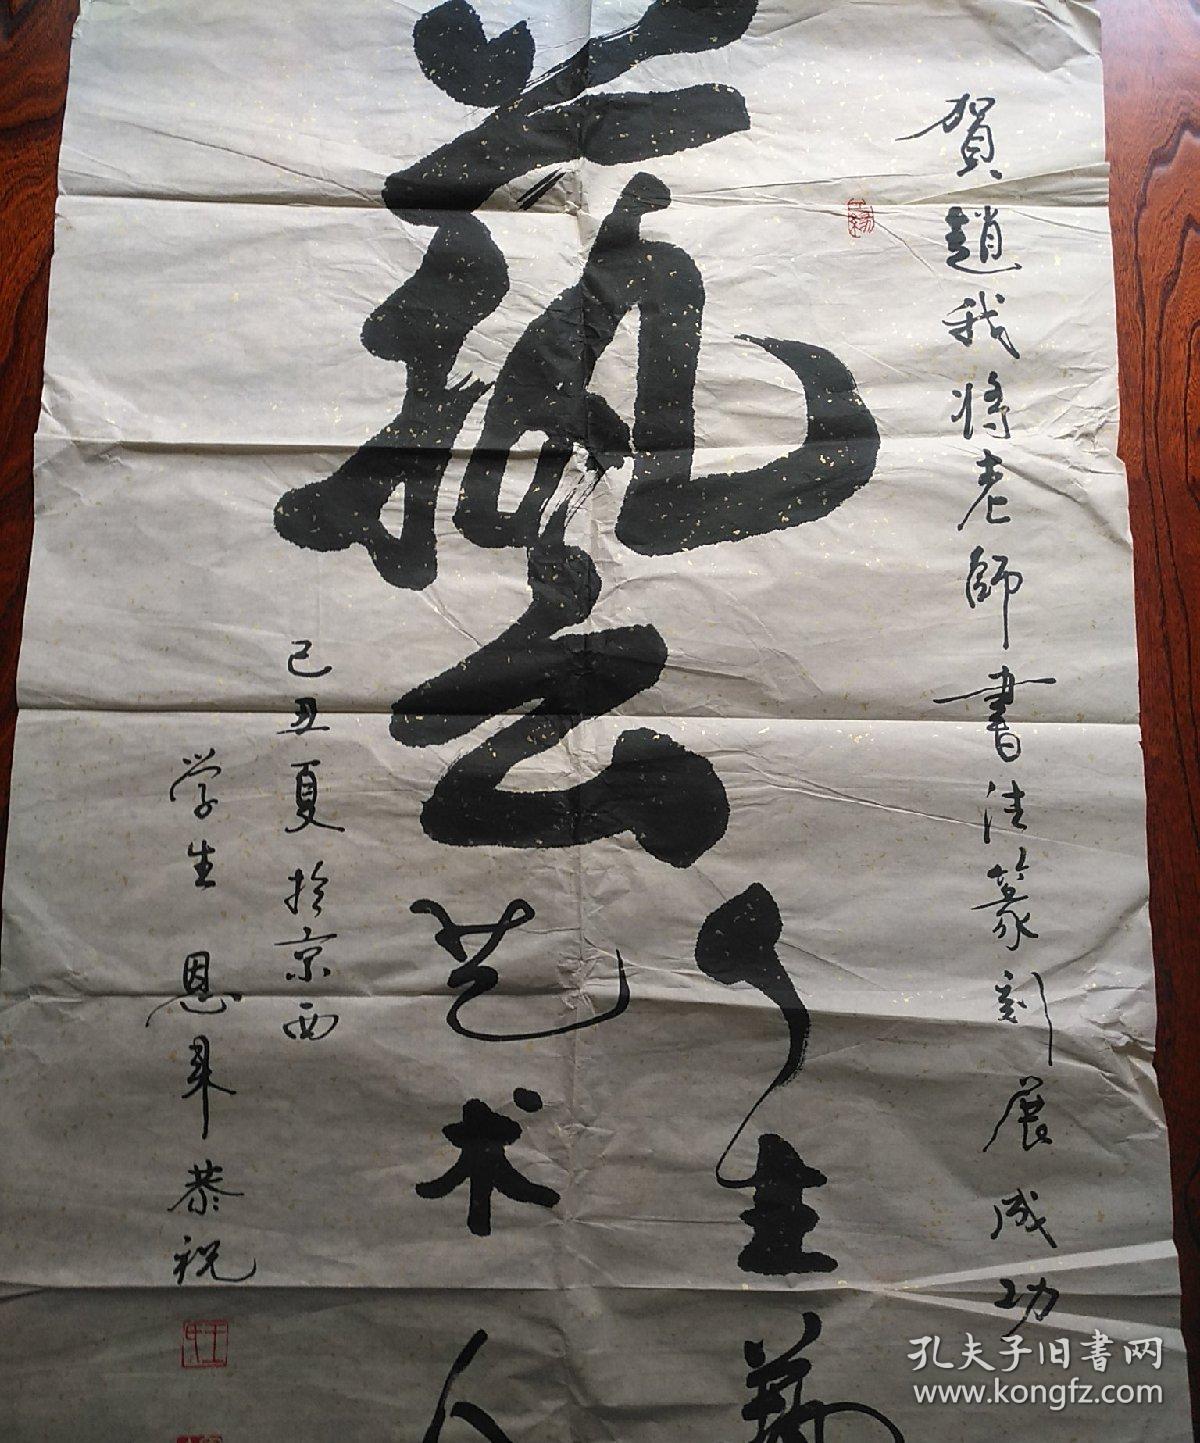 賀趙我将老師書法篆刻展成功
藝
人生藝
艺术人
己丑夏於京西
学生恩来恭祝
孔夫子旧書网
www.kongfz.com